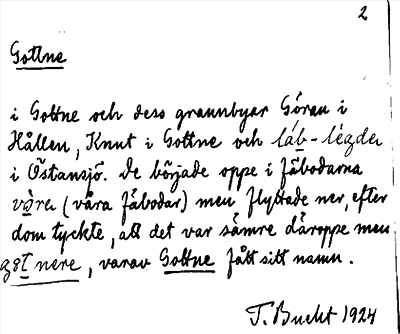 2
Gottne
i Gottne och dess grannbyar Göran i
Hållen, Knut i Gottne och láb-légdu
i Östansjö. De började oppe i fäbodarna
våra (våra fäbodar) men flyttade ner, efter
dom tyckte, att det var sämre däroppe men
gott nere, varav Gottne fått sitt namn.
T. Bucht 1924